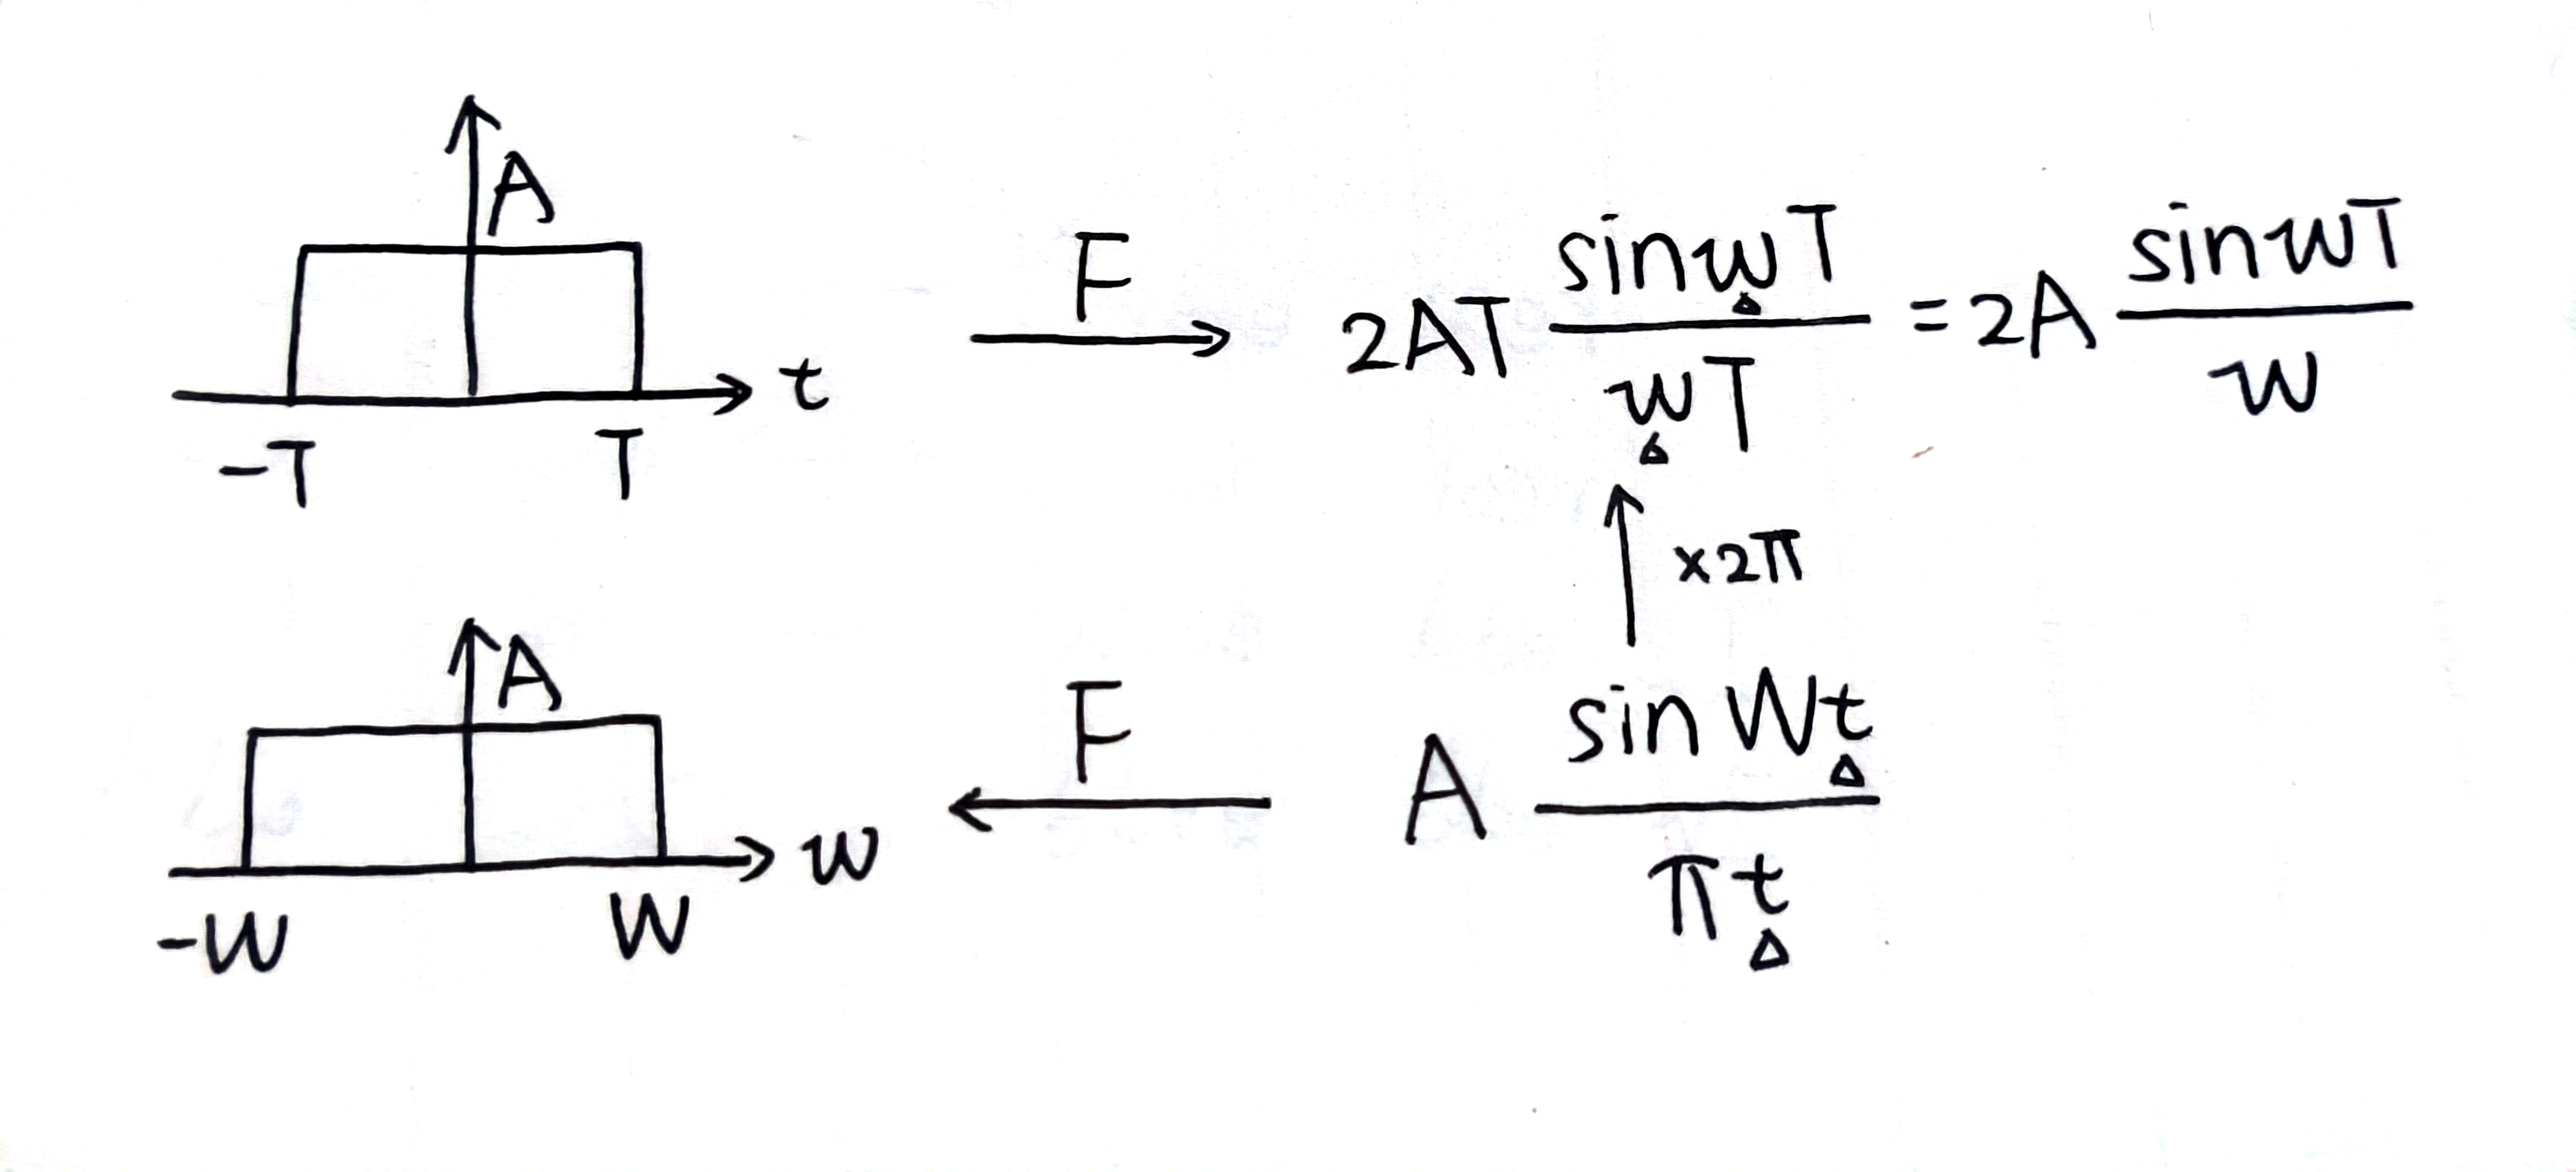 A
t
-T
T
F
2AT sinwT / wT = 2A sinwT / w
×2π
A
w
-W
W
F
A sin Wt / πt